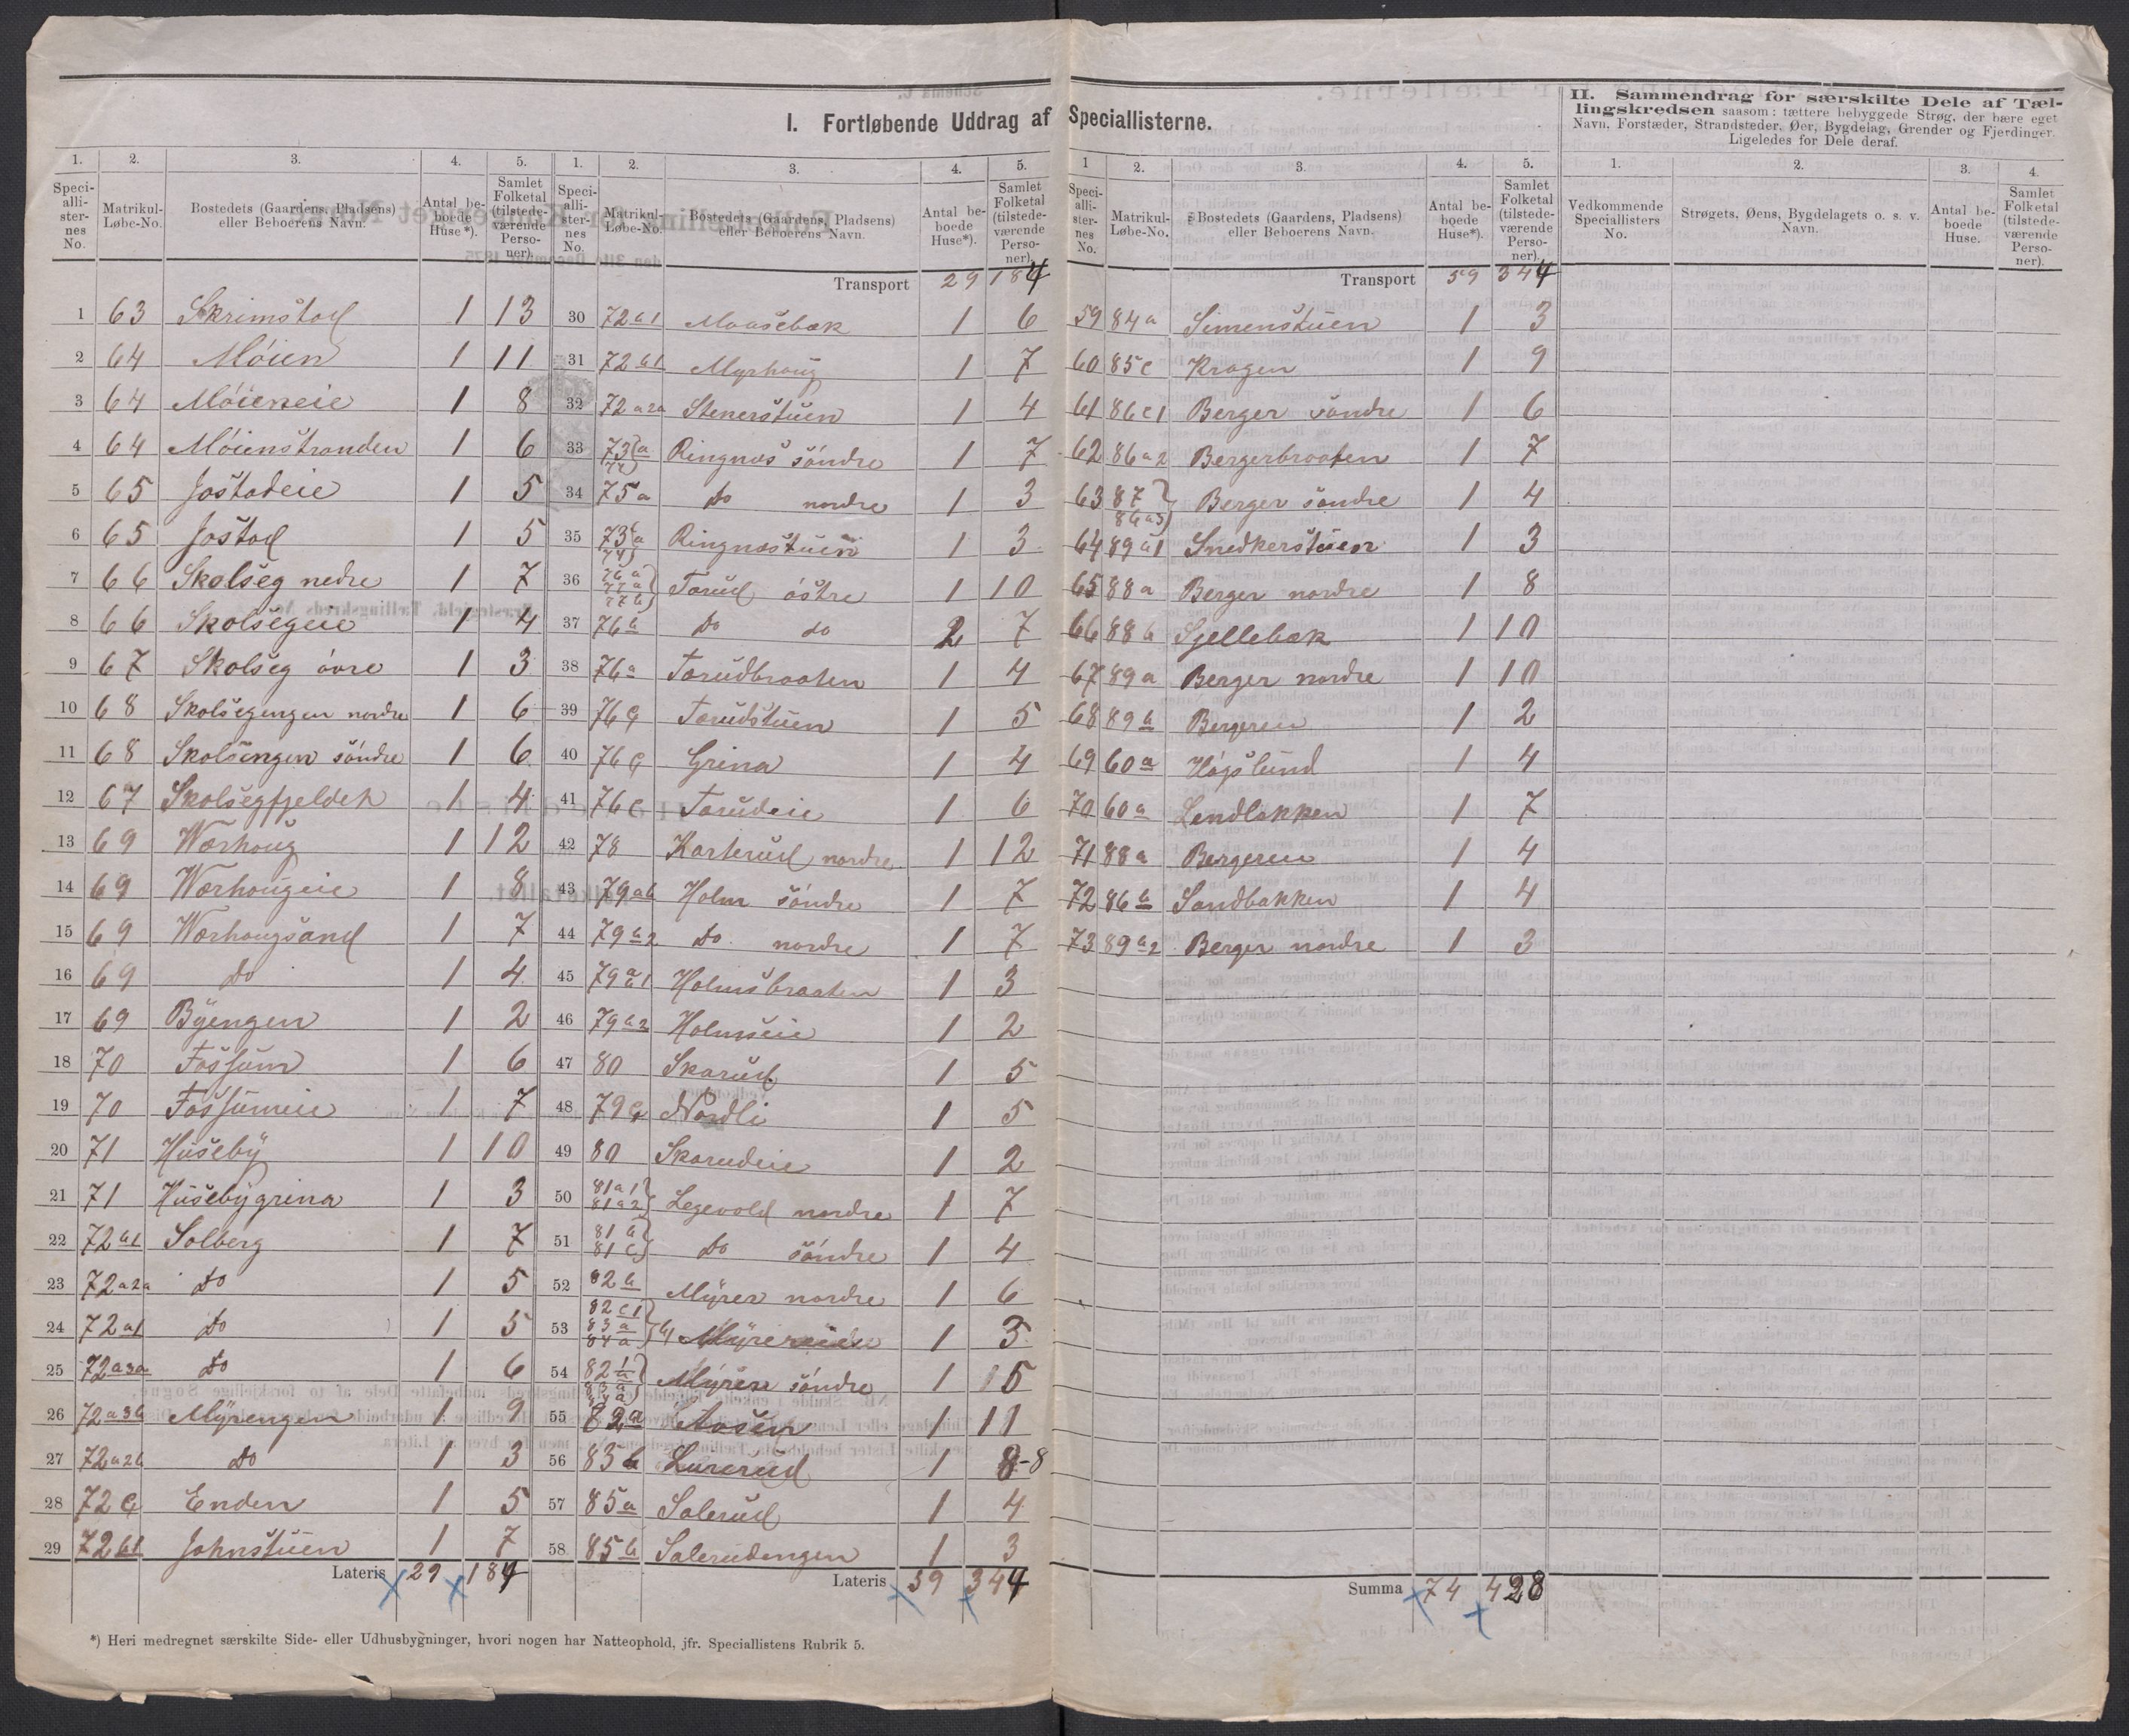 I. Fortløbende Uddrag af Speciallisterne.
1. 2. 3. 4. 5.
Speciallisternes No. Matrikul-Løbe-No. Bostedets (Gaardens, Pladsens) eller Beboerens Navn. Antal beboede Huse*). Samlet Folketal (tilstedeværende Personer).
1 63 Skrimstad 1 13
2 64 Móien 1 11
3 64 Móieneie 1 8
4 64 Móienstranden 1 6
5 65 Jostadeie 1 5
6 65 Jostad 1 5
7 66 Skolseg nedre 1 7
8 66 Skolsegeie 1 4
9 67 Skolseg óvre 1 3
10 68 Skolsegengen nordre 1 6
11 68 Skolsengen sóndre 1 6
12 67 Skolsegfjeldet 1 4
13 69 Wærhoug 1 12
14 69 Wærhougeie 1 8
15 69 Wærhougsand 1 7
16 69 do 1 4
17 69 Byengen 1 2
18 70 Fossum 1 6
19 70 Fossumeie 1 7
20 71 Huseby 1 10
21 71 Husebygrina 1 3
22 72b1 Solberg 1 7
23 72a2a do 1 5
24 72a1 do 1 5
25 72a3a do 1 6
26 72a3b Myrengen 1 9
27 72a2b do 1 3
28 72c Enden 1 5
29 72b1 Johnstuen 1 7
Lateris 29 184
1. 2. 3. 4. 5.
Speciallisternes No. Matrikul-Løbe-No. Bostedets (Gaardens, Pladsens) eller Beboerens Navn. Antal beboede Huse*). Samlet Folketal (tilstedeværende Personer).
Transport 29 184
30 72b1 Maasebæk 1 6
31 72b1 Myrhoug 1 7
32 72a2a Stenerstuen 1 4
33 73a 74 Ringnæs sóndre 1 7
34 75a do nordre 1 3
35 73a 74 Ringnæstuen 1 3
36 76a 77a 77b Torud óstre 1 10
37 76b do do 2 7
38 76a Torudbraaten 1 4
39 76c Torudstuen 1 5
40 76c Grina 1 4
41 76c Torudeie 1 6
42 78 Karterud nordre 1 12
43 79ab Holm sóndre 1 7
44 79a2 do nordre 1 7
45 79a1 Holmsbraaten 1 3
46 79a2 Holmseie 1 2
47 80 Skarud 1 5
48 79c Nordli 1 5
49 80 Skarudeie 1 2
50 81a1 81a2 Legevold nordre 1 7
51 81b 81c do sóndre 1 4
52 82b Myrer nordre 1 6
53 82c1 83a 84a 1 3
54 Myrer sóndre 1 5
55 82a Aasen 1 11
56 83b Lurerud 1 8-8
57 85a Solerud 1 4
58 85b Solerudengen 1 3
Lateris 59 344
1 2. 3. 4. 5.
Speciallisternes No. Matrikul-Løbe-No. Bostedets (Gaardens, Pladsens) eller Beboerens Navn. Antal beboede Huse*). Samlet Folketal (tilstedeværende Personer).
Transport 59 344
59 84a Simenstuen 1 3
60 85c Kragen 1 9
61 86c1 Berger sóndre 1 6
62 86a2 Bergerbraaten 1 7
63 87 86a3 Berger sóndre 1 4
64 89a1 Snedkerstuen 1 3
65 88a Berger nordre 1 8
66 88b Sjellebæk 1 10
67 89a Berger nordre 1 10
68 89b Bergeren 1 2
69 60a Hógslund 1 4
70 60a Lendbakken 1 7
71 88a Bergeren 1 4
72 86b Sandbakken 1 4
73 89a2 Berger nordre 1 3
Summa 74 428
II. Sammendrag for særskilte Dele af Tællingskredsen saasom: tættere bebyggede Strøg, der bære eget Navn, Forstæder, Strandstæder, Øer, Bygdelag, Grender og Fjerdinger. Ligeledes for Dele deraf.
1. 2. 3. 4.
Vedkommende Speciallisters No. Strøgets, Øens, Bygdelagets o. s. v. Navn. Antal beboede Huse. Samlet Folketal (tilstedeværende Personer).
*) Heri medregnet særskilte Side- eller Udhusbygninger, hvori nogen har Natteophold, jfr. Speciallistens Rubrik 5.